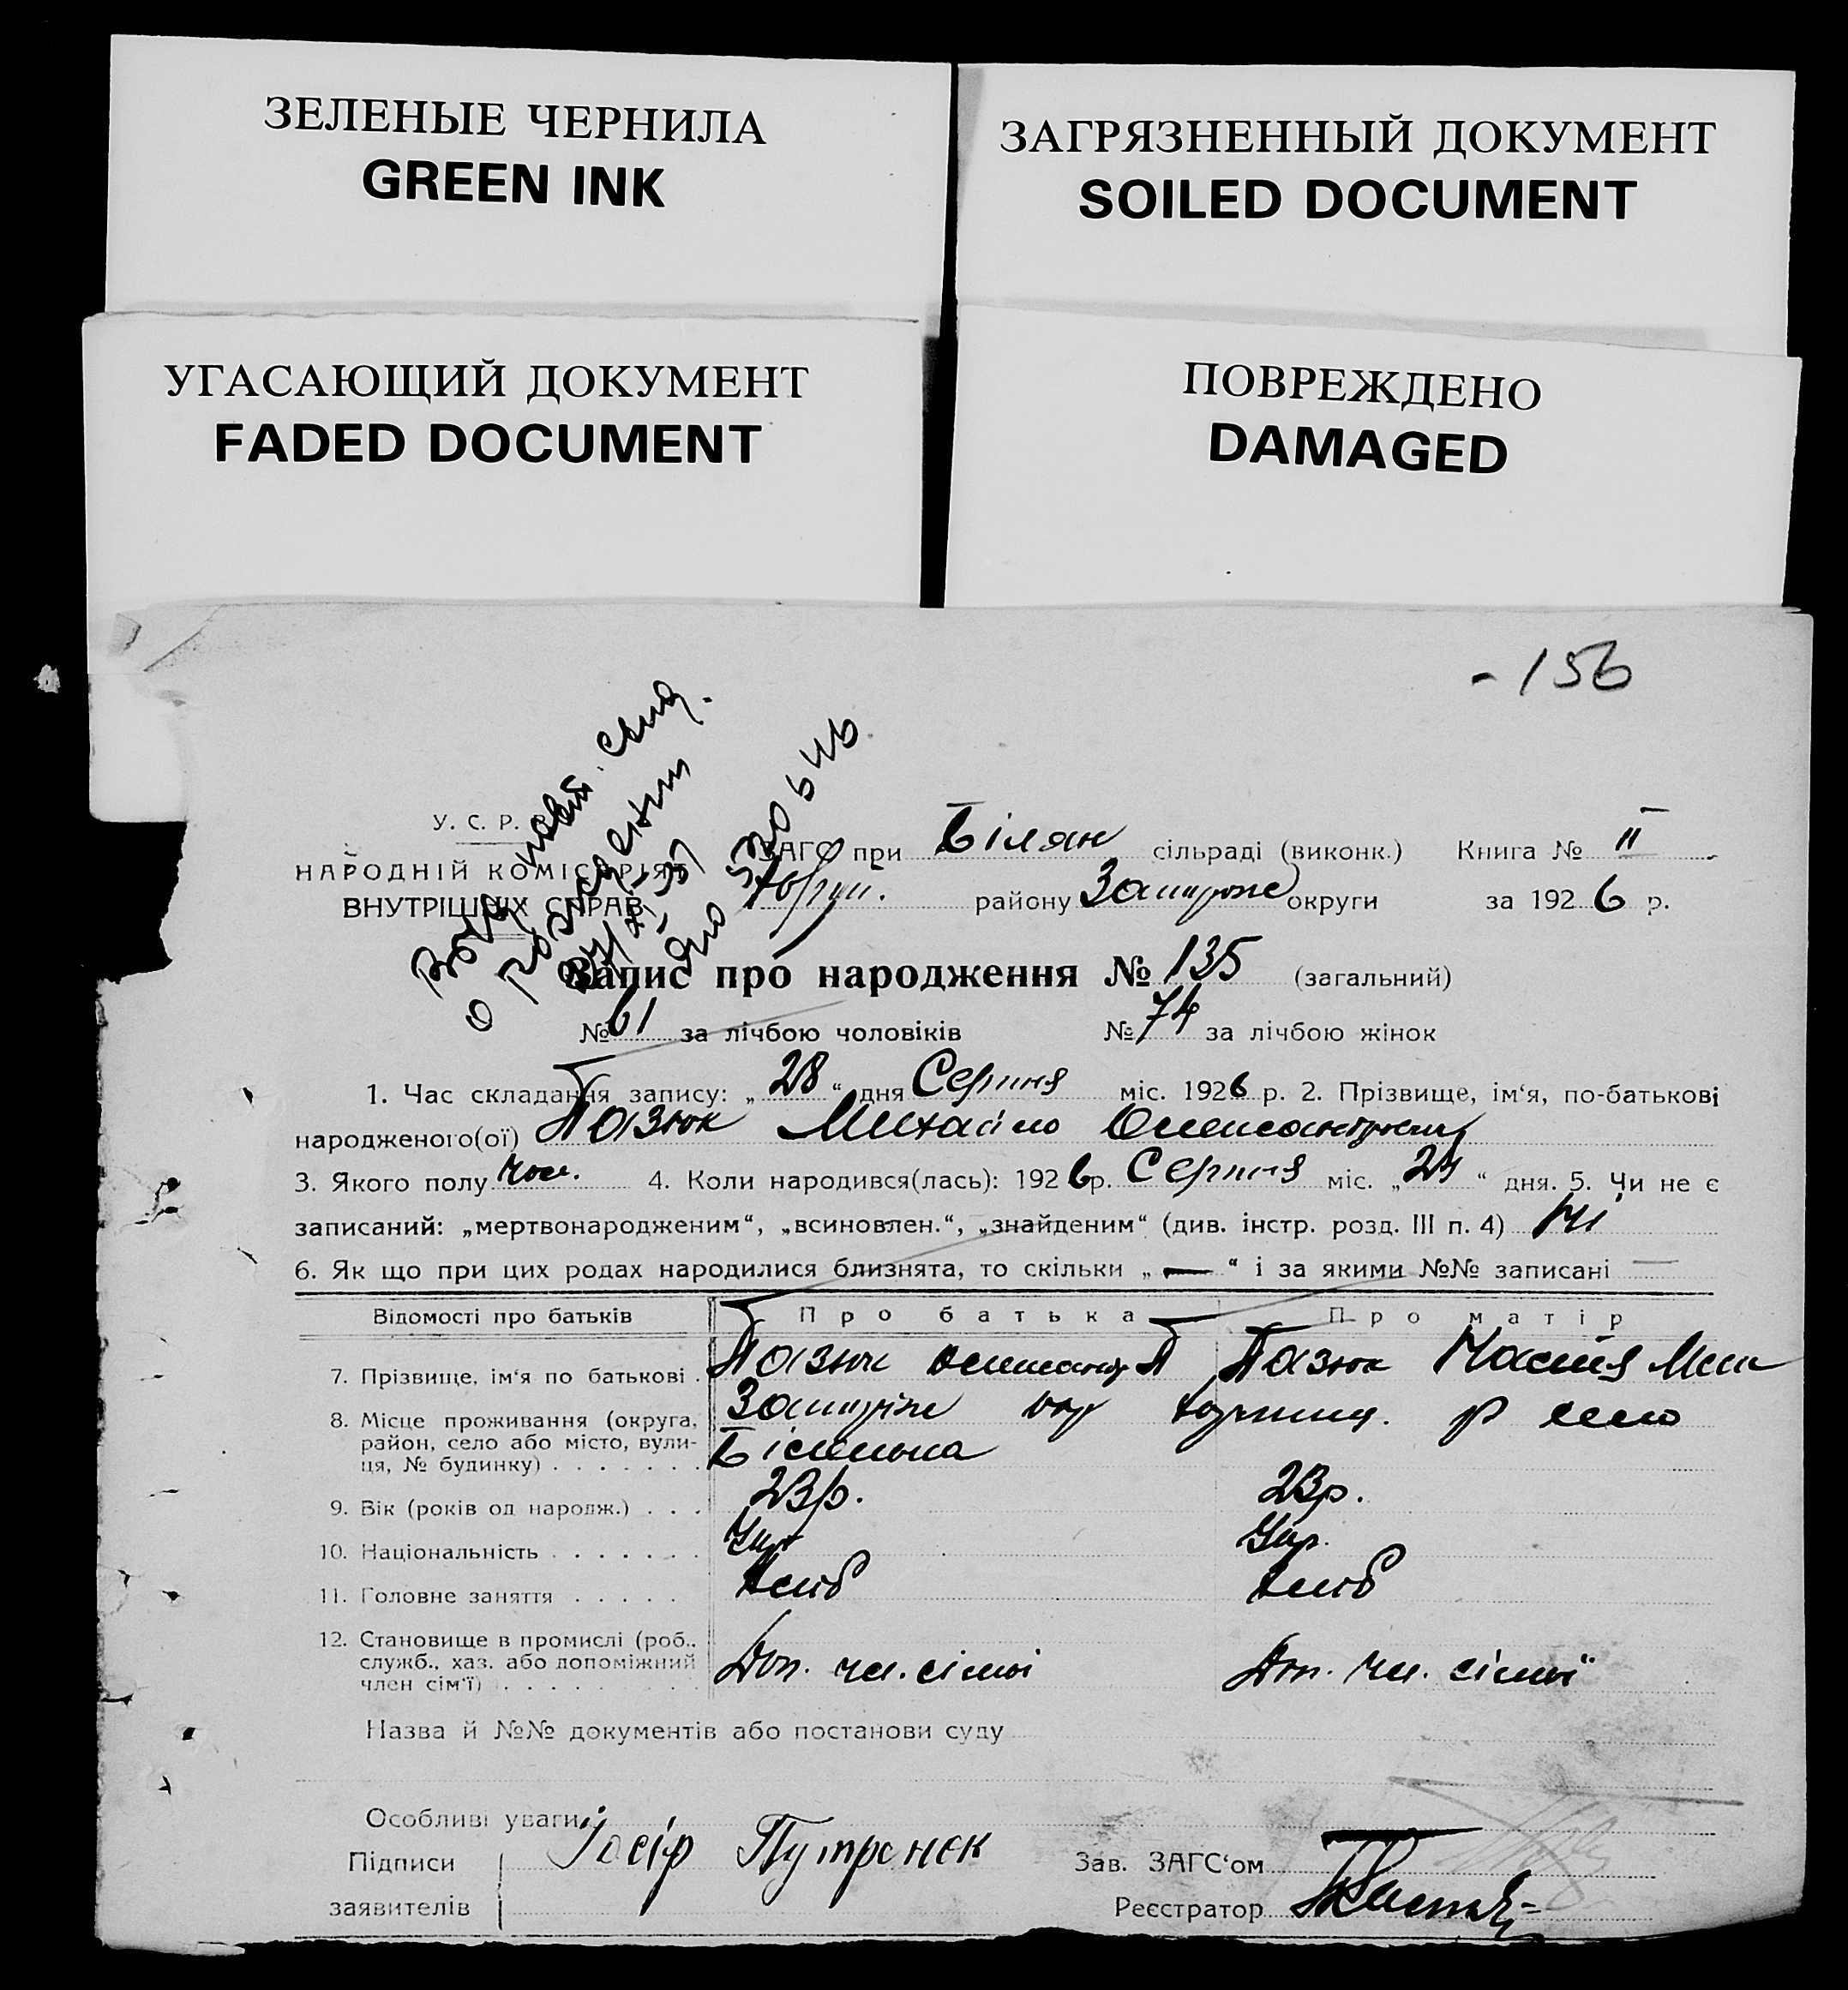 ЗЕЛЕНЫЕ ЧЕРНИЛА
GREEN INK
ЗАГРЯЗНЕННЫЙ ДОКУМЕНТ
SOILED DOCUMENT
УГАСАЮЩИЙ ДОКУМЕНТ
FADED DOCUMENT
ПОВРЕЖДЕНО
DAMAGED
-156
У. С. Р. Р.
НАРОДНІЙ КОМІСАРІЯТ
ВНУТРІШНІХ СПРАВ
ЗАГС при Білян сільраді (виконк.) Книга № II
району Запоріже округи за 1926 р.
Запис про народження № 135 (загальний)
№ 61 за лічбою чоловіків № 74 за лічбою жінок
1. Час складання запису: „28“ дня Серпня міс. 1926 р. 2. Прізвище, ім‘я, по-батькові
народженого(ої) Пазюк Михайло Олександрович
3. Якого полу чол. 4. Коли народився(лась): 1926 р. Серпня міс. „24“ дня. 5. Чи не є
записаний: „мертвонародженим“, „всиновлен.“, „знайденим“ (див. інстр. розд. III п. 4) Ні
6. Як що при цих родах народилися близнята, то скільки „—“ і за якими №№ записані —
Відомості про батьків Про батька Про матір
7. Прізвище, ім‘я по батькові . Пазюк Олександр П Пазюк Настя
8. Місце проживання (округа, Запоріже окр р село
район, село або місто, вули-
ця, № будинку) . . . . . . .
9. Вік (років од народж.) . . . 23р. 23р.
10. Національність . . . . . . . Укр Укр.
11. Головне заняття . . . . . Хліб Хліб
12. Становище в промислі (роб.,
служб., хаз. або допоміжний Доп. чл. сімї Доп. чл. сімї
член сім‘ї) . . . . . . . . .
Назва й №№ документів або постанови суду
Особливі уваги:
Підписи Іосір Путренєк Зав. ЗАГС‘ом
заявителів Реєстратор